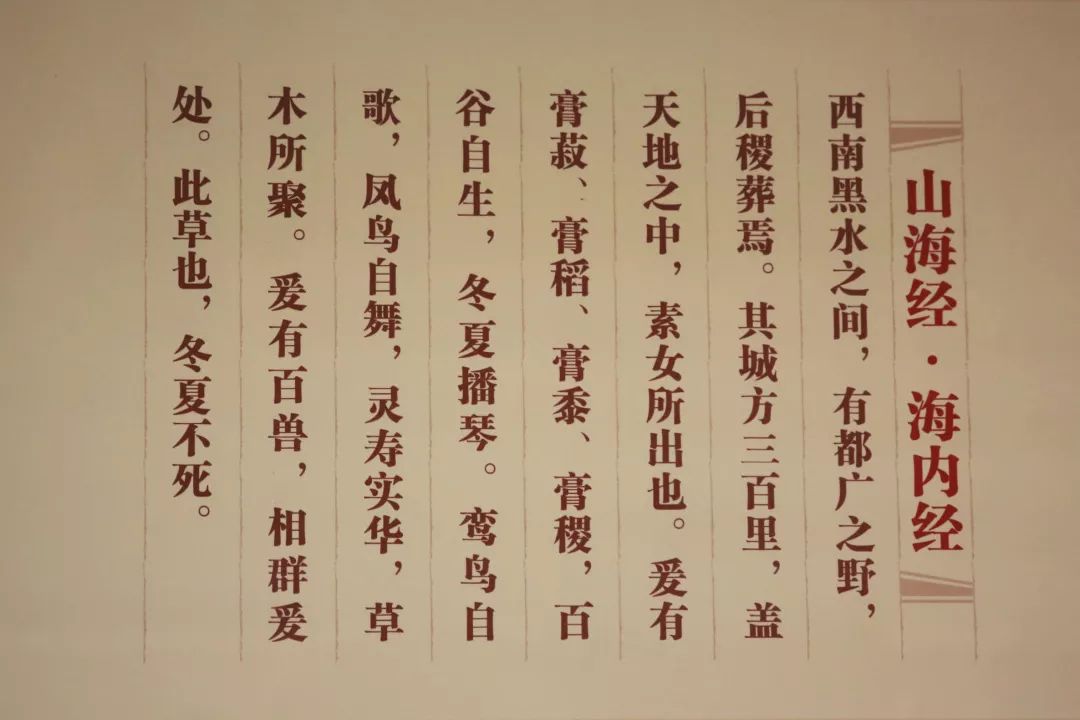 山海经·海内经
西南黑水之间，有都广之野，
后稷葬焉。其城方三百里，盖
天地之中，素女所出也。爰有
膏菽、膏稻、膏黍、膏稷，百
谷自生，冬夏播琴。鸾鸟自
歌，凤鸟自舞，灵寿实华，草
木所聚。爰有百兽，相群爰
处。此草也，冬夏不死。